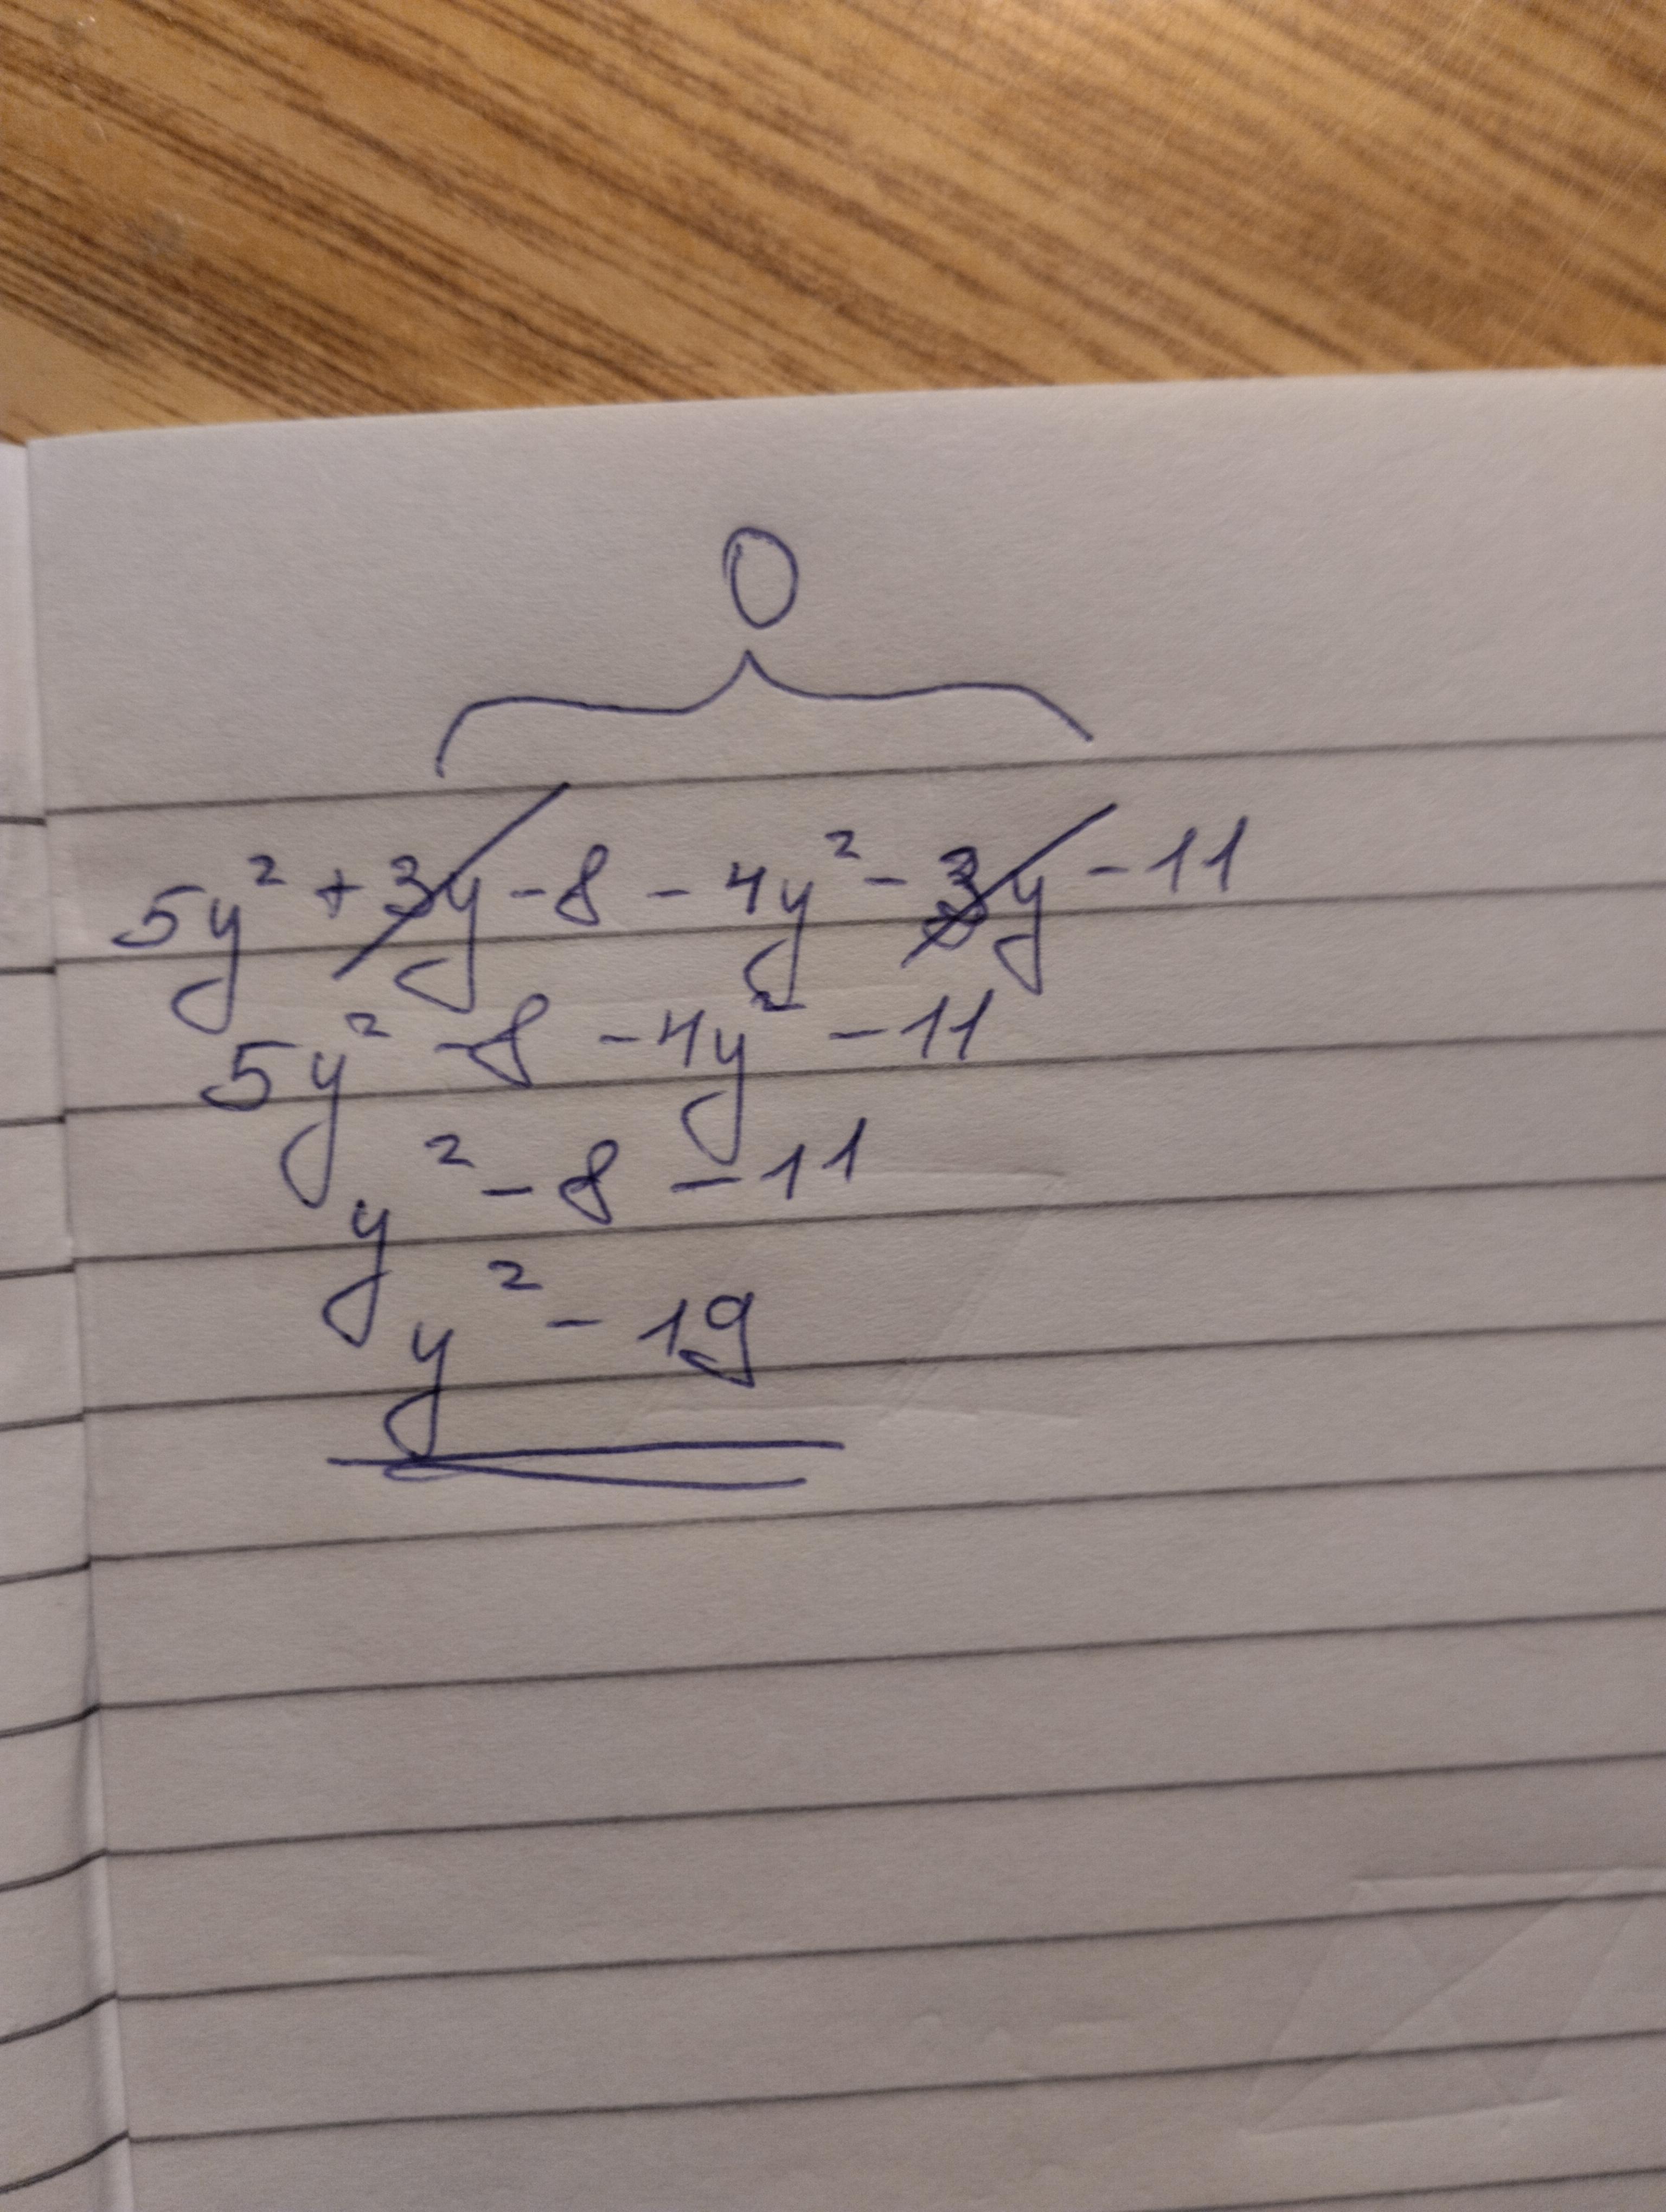 0
5y² + 3y - 8 - 4y² - 3y - 11
5y² - 8 - 4y² - 11
y² - 8 - 11
y² - 19